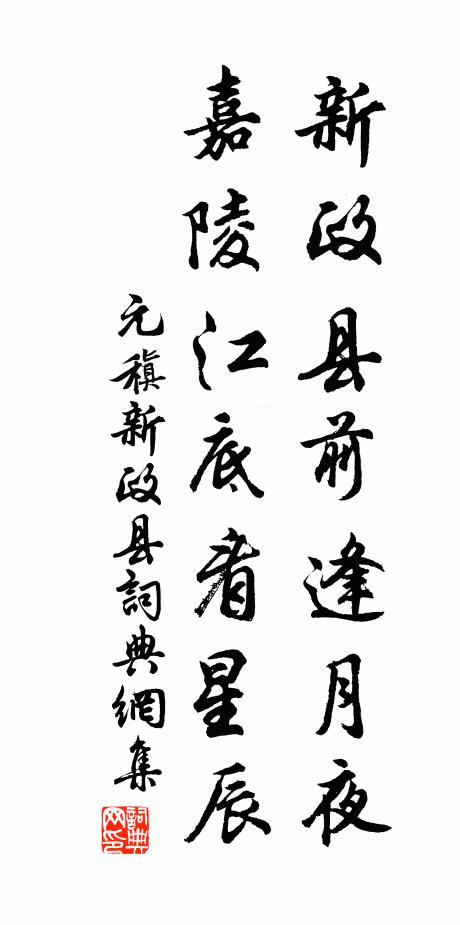 新政县前逢月夜
嘉陵江底看星辰
元稹新政县詞典網集
詞典
网印